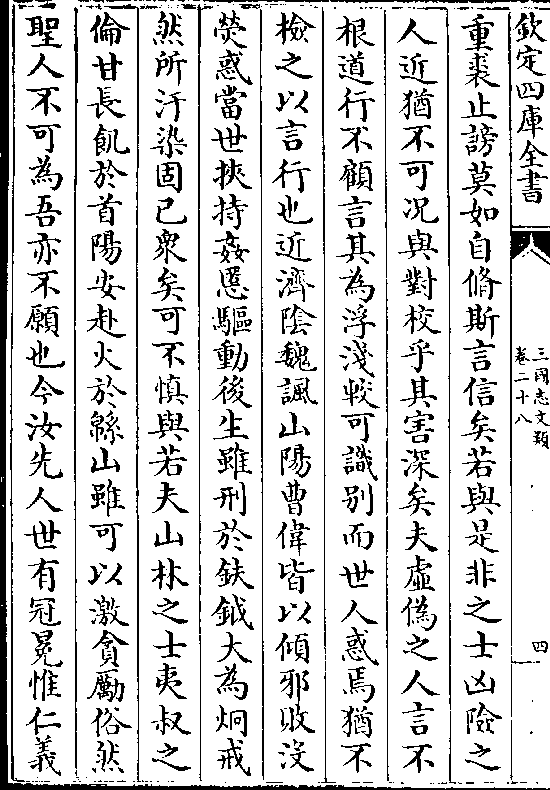 欽定四庫全書
三國志文類
卷二十八
四
重裘止謗莫如自脩斯言信矣若與是非之士凶險之
人近猶不可况與對校乎其害深矣夫虚偽之人言不
根道行不顧言其為浮淺較可識别而世人惑焉猶不
檢之以言行也近濟隂魏諷山陽曹偉皆以傾邪敗沒
熒惑當世挾持姦慝驅動後生雖刑於鈇鉞大為炯戒
然所汙染固已衆矣可不慎與若夫山林之士夷叔之
倫甘長飢於首陽安赴火於緜山雖可以激貪勵俗然
聖人不可為吾亦不願也今汝先人世有冠冕惟仁義